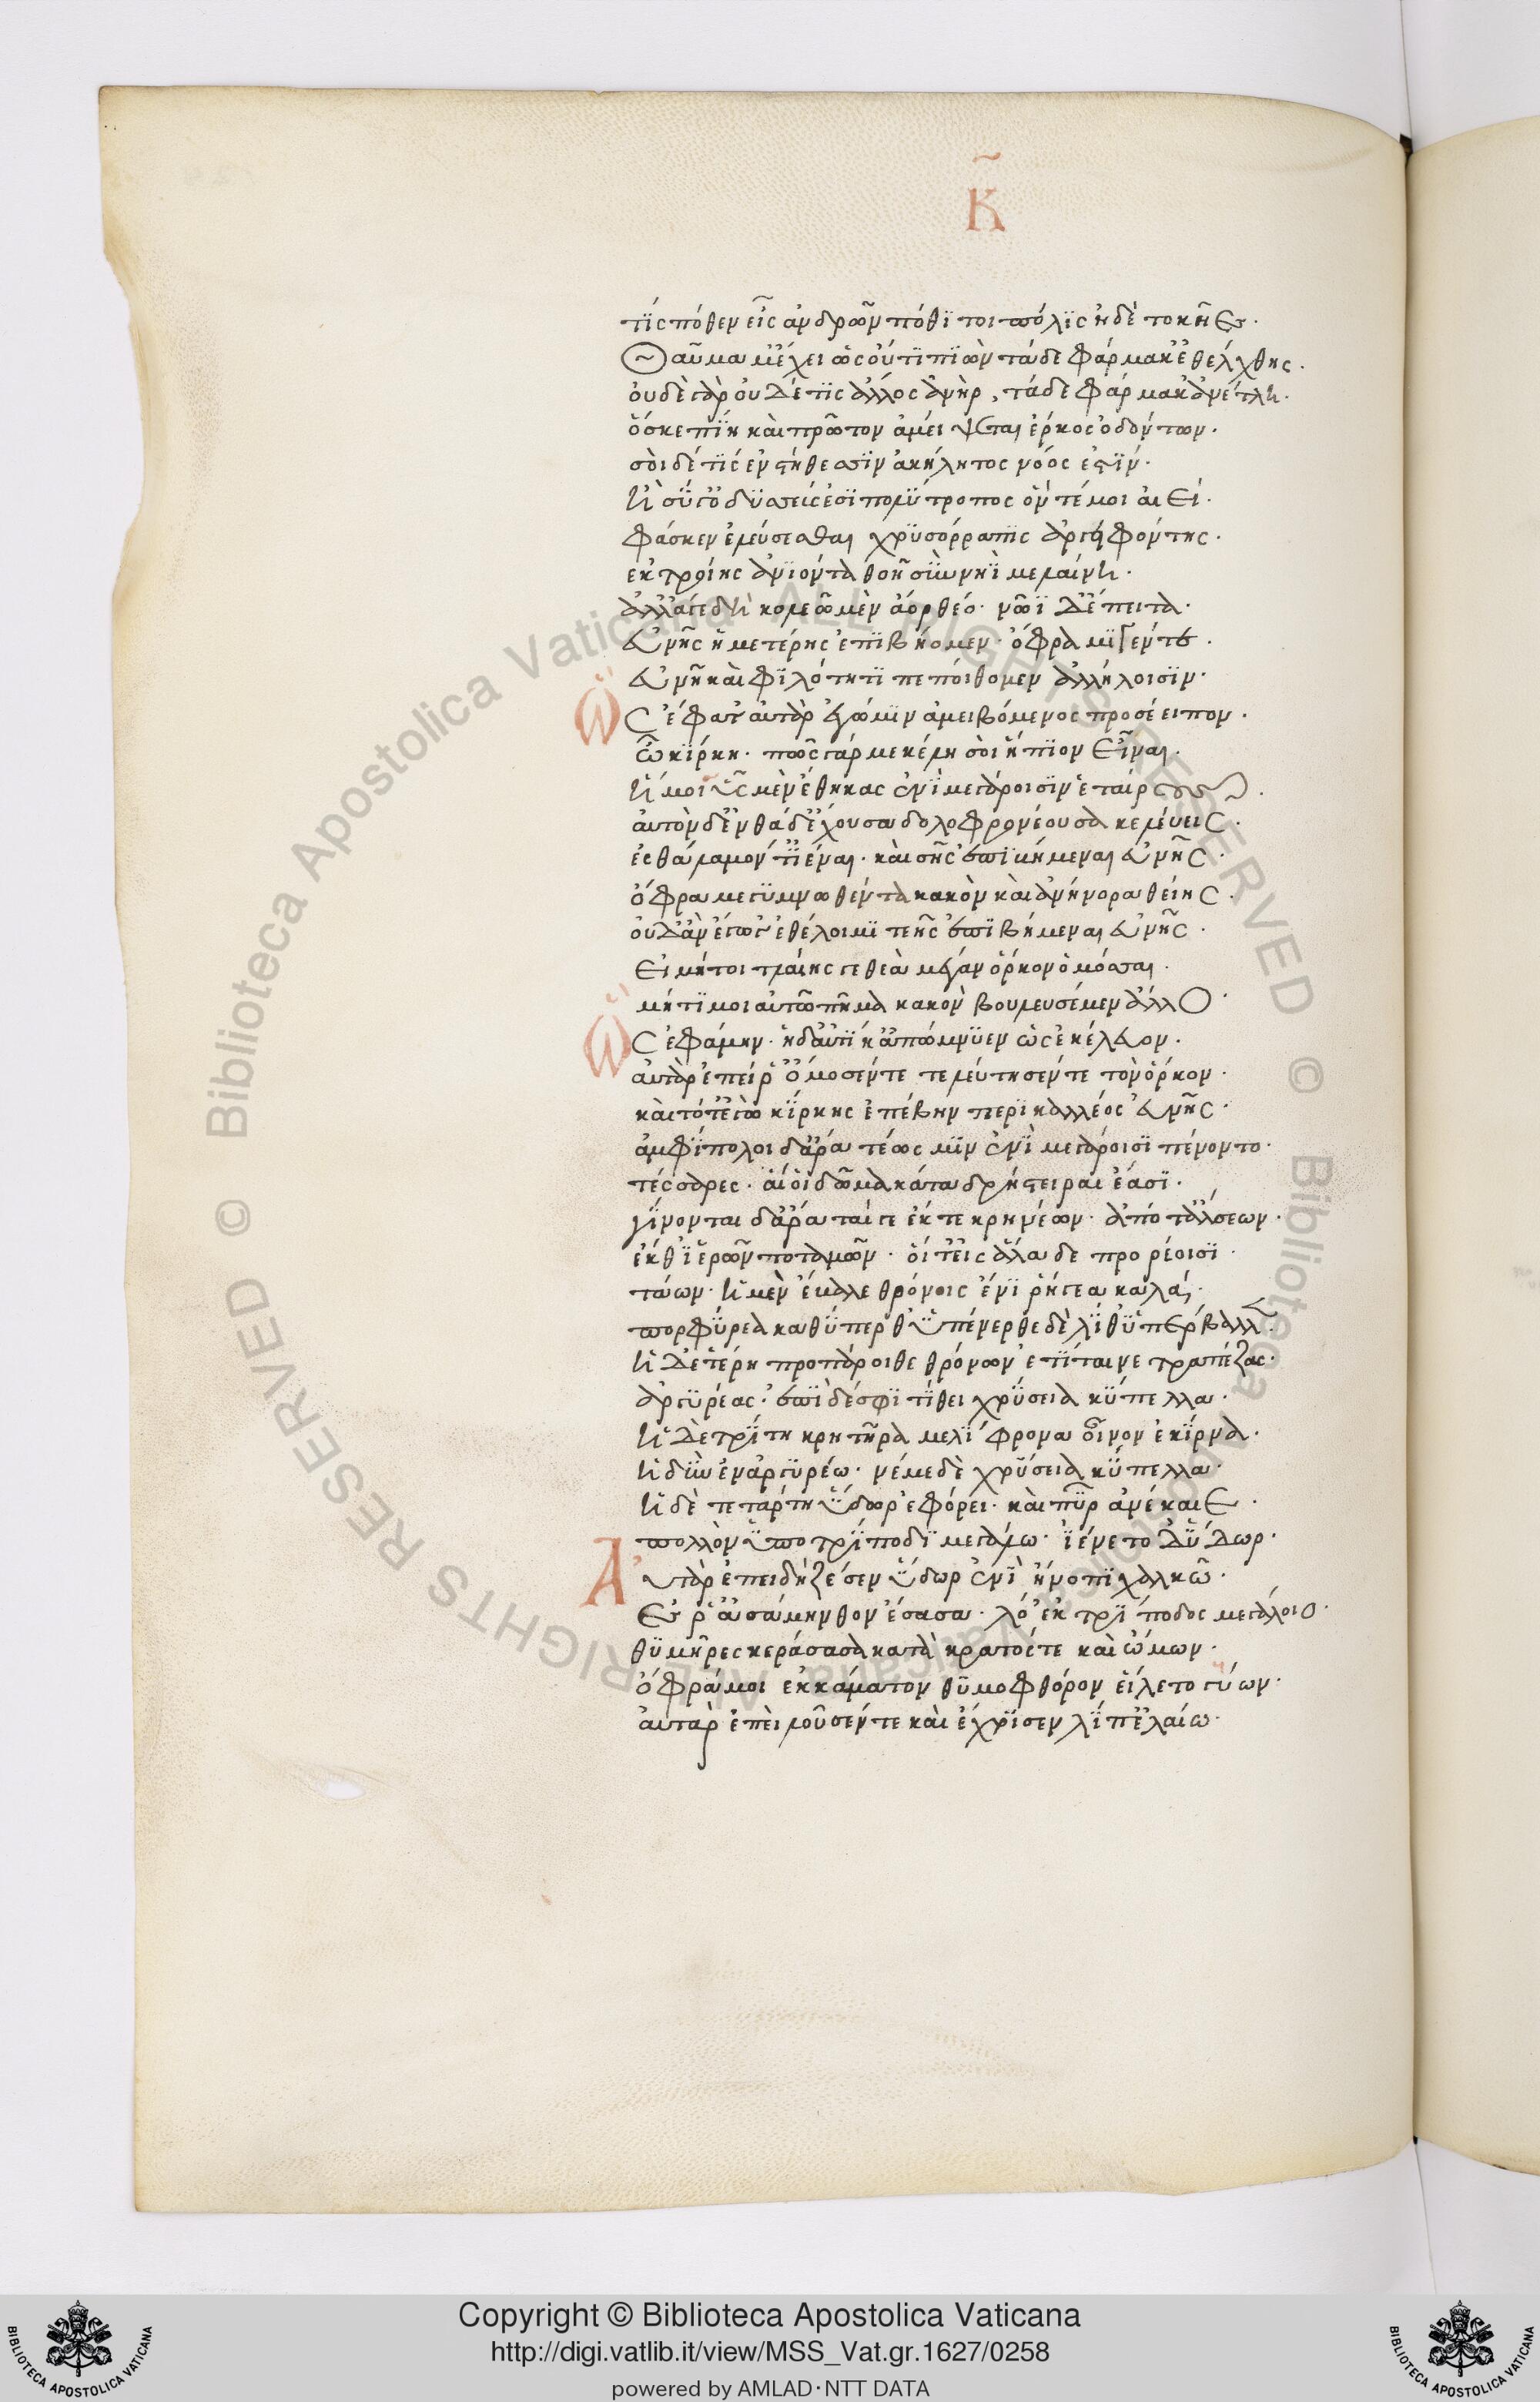 κ̃
τίς πόθεν εἶς ἀνδρῶν πόθι τοι πόλις ἠδὲ τοκῆες·
Θαῦμα μ' ἔχει ὡς οὔτι πιὼν τάδε φάρμακ' ἐθέλχθης·
οὐδὲ γὰρ οὐδέ τις ἄλλος ἀνὴρ, τάδε φάρμακ' ἀνέτλη·
ὅς κε πίῃ καὶ πρῶτον ἀμείψεται ἕρκος ὀδόντων·
σοὶ δέ τις ἐν στήθεσσιν ἀκήλητος νόος ἐστίν·
ἦ σύ γ' ὀδυσσεύς ἐσσι πολύτροπος ὅν τέ μοι αἰεί·
φάσκεν ἐλεύσεσθαι χρυσόρραπις ἀργειφόντης·
ἐκ τροίης ἀνιόντα θοῇ σὺν νηῒ μελαίνῃ·
ἀλλ' ἄγε δὴ κολεῷ μὲν ἄορ θέο· νῶϊ δ' ἔπειτα·
εὐνῆς ἡμετέρης ἐπιβήομεν· ὄφρα μιγέντε·
εὐνῇ καὶ φιλότητι πεποίθομεν ἀλλήλοισιν·
Ὣς ἔφατ' αὐτὰρ ἐγώ μιν ἀμειβόμενος προσέειπον·
ὦ κίρκη· πῶς γάρ με κέλῃ σοὶ ἤπιον εἶναι·
ἥ μοι σῦς μὲν ἔθηκας ἐνὶ μεγάροισιν ἑταίρους·
αὐτὸν δ' ἐνθάδ' ἔχουσα δολοφρονέουσα κελεύεις·
ἐς θάλαμόν τ' ἰέναι· καὶ σῆς ἐπικήμεναι εὐνῆς·
ὄφρα με γυμνωθέντα κακὸν καὶ ἀνήνορα θείης·
οὐδ' ἂν ἔγωγ' ἐθέλοιμι τεῆς ἐπιβήμεναι εὐνῆς·
εἰ μή τοι τλαίης γε θεὰ μέγαν ὅρκον ὀμόσσαι·
μήτι μοι αὐτῷ πῆμα κακὸν βουλευσέμεν ἄλλο·
Ὣς ἐφάμην· ἡ δ' αὐτίκ' ἀπώμνυεν ὡς ἐκέλευον·
αὐτὰρ ἐπεί ῥ' ὄμοσέν τε τελεύτησέν τε τὸν ὅρκον·
καὶ τότ' ἐγὼ κίρκης ἐπέβην περικαλλέος εὐνῆς·
ἀμφίπολοι δ' ἄρα τέως μὲν ἐνὶ μεγάροισι πένοντο·
τέσσαρες· αἵ οἱ δῶμα κάτα δρήστειραι ἔασι·
γίνονται δ' ἄρα ταί γε ἔκ τε κρηνέων· ἀπό τ' ἀλσέων·
ἔκ θ' ἱερῶν ποταμῶν· οἵ τ' εἰς ἅλα δε προρέουσι·
τάων· ἡ μὲν ἔβαλλε θρόνοις ἔνι ῥήγεα καλά·
πορφύρεα καθύπερθ' ὑπένερθε δὲ λῖθ' ὑπέρβαλλεν·
ἡ δ' ἑτέρη προπάροιθε θρόνων ἐτίταινε τραπέζας·
ἀργυρέας· ἐπὶ δέ σφι τίθει χρύσεια κύπελλα·
ἡ δὲ τρίτη κρητῆρα μελίφρονα οἶνον ἐκίρνα·
ἡδὺν ἐν ἀργυρέῳ· νέμε δὲ χρύσεια κύπελλα·
ἡ δὲ τετάρτη ὕδωρ ἐφόρει· καὶ πῦρ ἀνέκαιε·
πολλὸν ὑπὸ τρίποδι μεγάλῳ· ἰένετο δ' ὕδωρ·
Αὐτὰρ ἐπειδὴ ζέσσεν ὕδωρ ἐνὶ ἤνοπι χαλκῷ·
ἔς ῥ' ἀσάμινθον ἕσασα· λό' ἐκ τρίποδος μεγάλοιο·
θυμῆρες κεράσασα κατὰ κρατός τε καὶ ὤμων·
ὄφρα μοι ἐκ κάματον θυμοφθόρον εἵλετο γύων·
αὐτὰρ ἐπεὶ λοῦσέν τε καὶ ἔχρισεν λίπ' ἐλαίῳ·
© Biblioteca Apostolica Vaticana ALL RIGHTS RESERVED © Biblioteca Apostolica Vaticana ALL RIGHTS RESERVED
Copyright © Biblioteca Apostolica Vaticana
http://digi.vatlib.it/view/MSS_Vat.gr.1627/0258
powered by AMLAD·NTT DATA
BIBLIOTECA APOSTOLICA VATICANA
BIBLIOTECA APOSTOLICA VATICANA